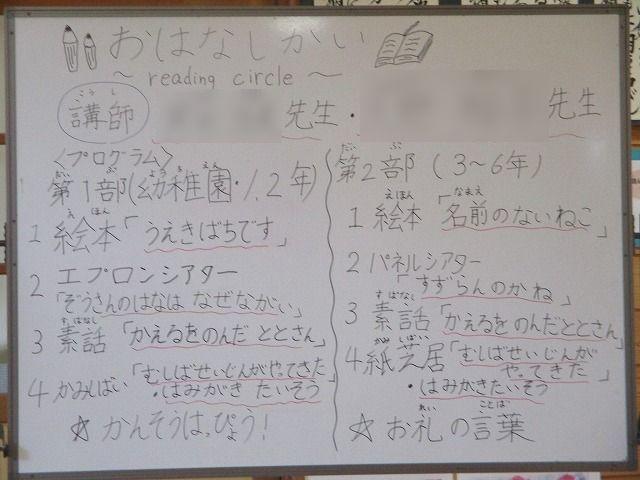 おはなしかい
～ reading circle ～
講師 先生・ 先生
〈プログラム〉
第1部(幼稚園・1.2年)
1 絵本「うえきばちです」
2 エプロンシアター
「ぞうさんのはなは なぜながい」
3 素話「かえるをのんだ ととさん」
4 かみしばい「むしばせいじんがやってきた」
・はみがき たいそう
☆ かんそうはっぴょう!
第2部 (3～6年)
1 絵本「名前のないねこ」
2 パネルシアター
「すずらんのかね」
3 素話「かえるをのんだととさん」
4 紙芝居「むしばせいじんが
やってきた」
・はみがきたいそう
☆ お礼の言葉